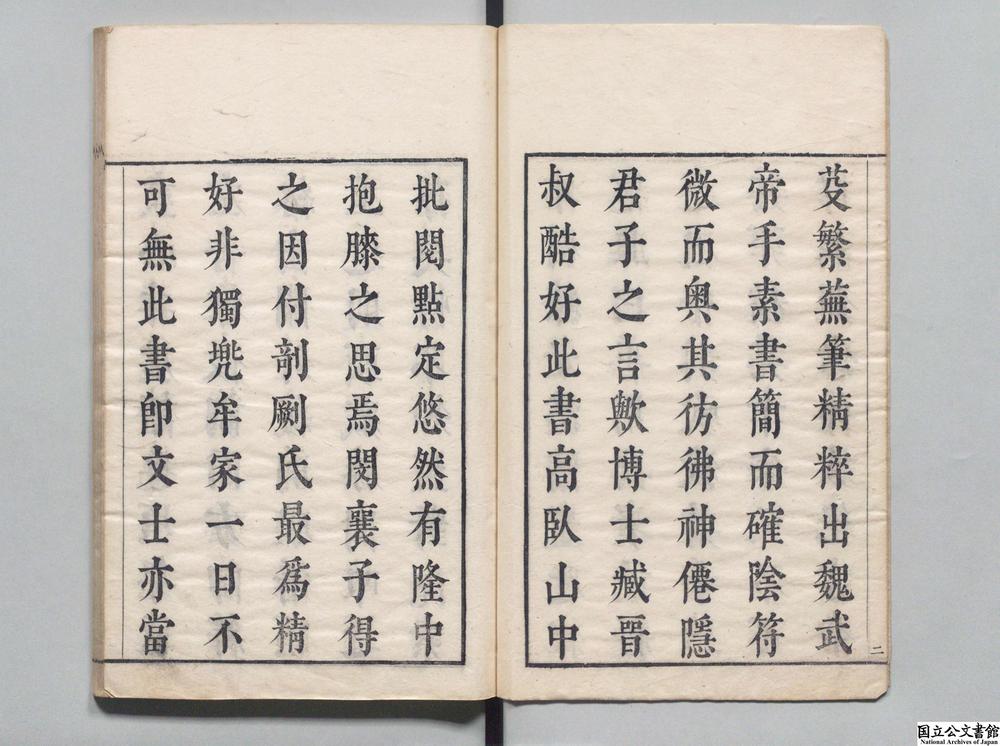 芟繁蕪筆精粹出魏武
帝手素書簡而確陰符
微而奥其彷彿神僊隱
君子之言歟博士臧晋
叔酷好此書高臥山中
二
批閱點定悠然有隆中
抱膝之思焉閔襄子得
之因付剞劂氏最爲精
好非獨兠牟家一日不
可無此書卽文士亦當
国立公文書館
National Archives of Japan